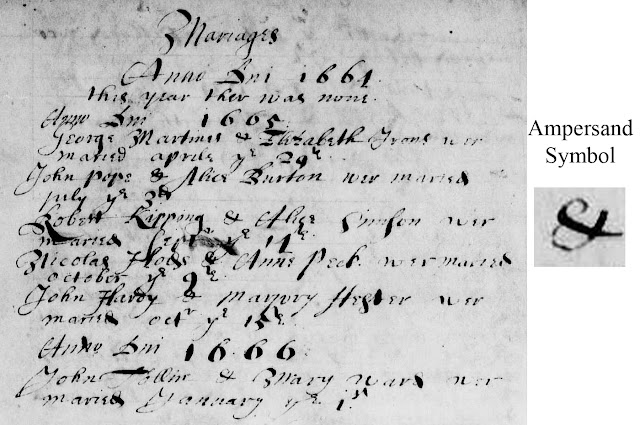 Mariages
Anno Dni 1664
this year ther was none
Anno Dni 1665
George Martines & Elizabeth Irons wer
maried aprile ye 29th
John Pope & Alice Burton wer maried
July ye 3d
Robert Kipping & Alice Simson wer
maried Sept ye 14th
Nicolas & Anne Peck wer maried
October ye 9th
John Hardy & Marjory Hester wer
maried octr ye 15th
Anno Dni 1666
John & Mary Ward wer
maried January ye 1st
Ampersand
Symbol
&